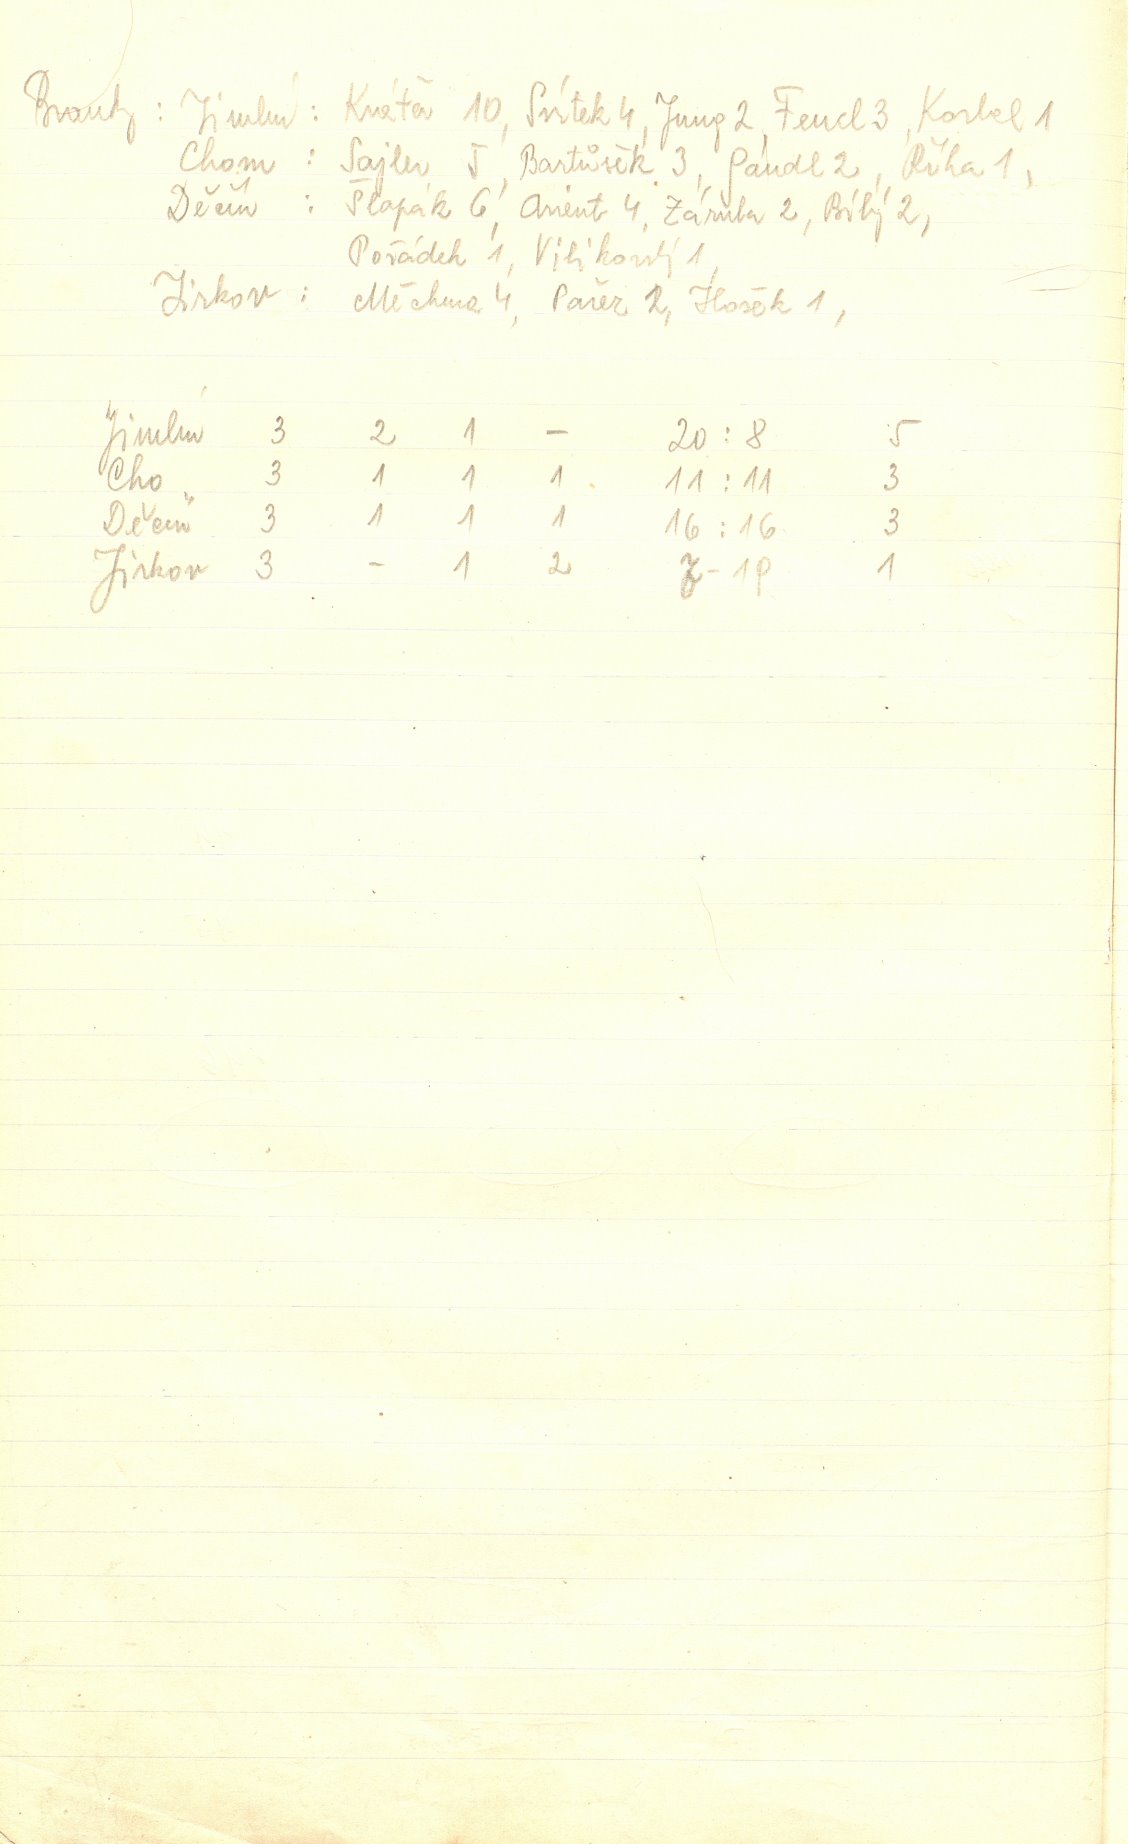 Branky : Jimlín : Kratěn 10, Svítek 4, Jung 2, Fencl 3, Korbel 1
Chom : Sajler 5, Bartůšek 3, Gándl 2, Říha 1,
Děčín : Šlapák 6, Arient 4, Záruba 2, Bílý 2,
Pořádek 1, 1,
Jirkov : Měchura 4, Pařez 2, Hošek 1,
Jimlín 3 2 1 - 20 : 8 5
Cho 3 1 1 1 11 : 11 3
Děčín 3 1 1 1 16 : 16 3
Jirkov 3 - 1 2 7 - 19 1